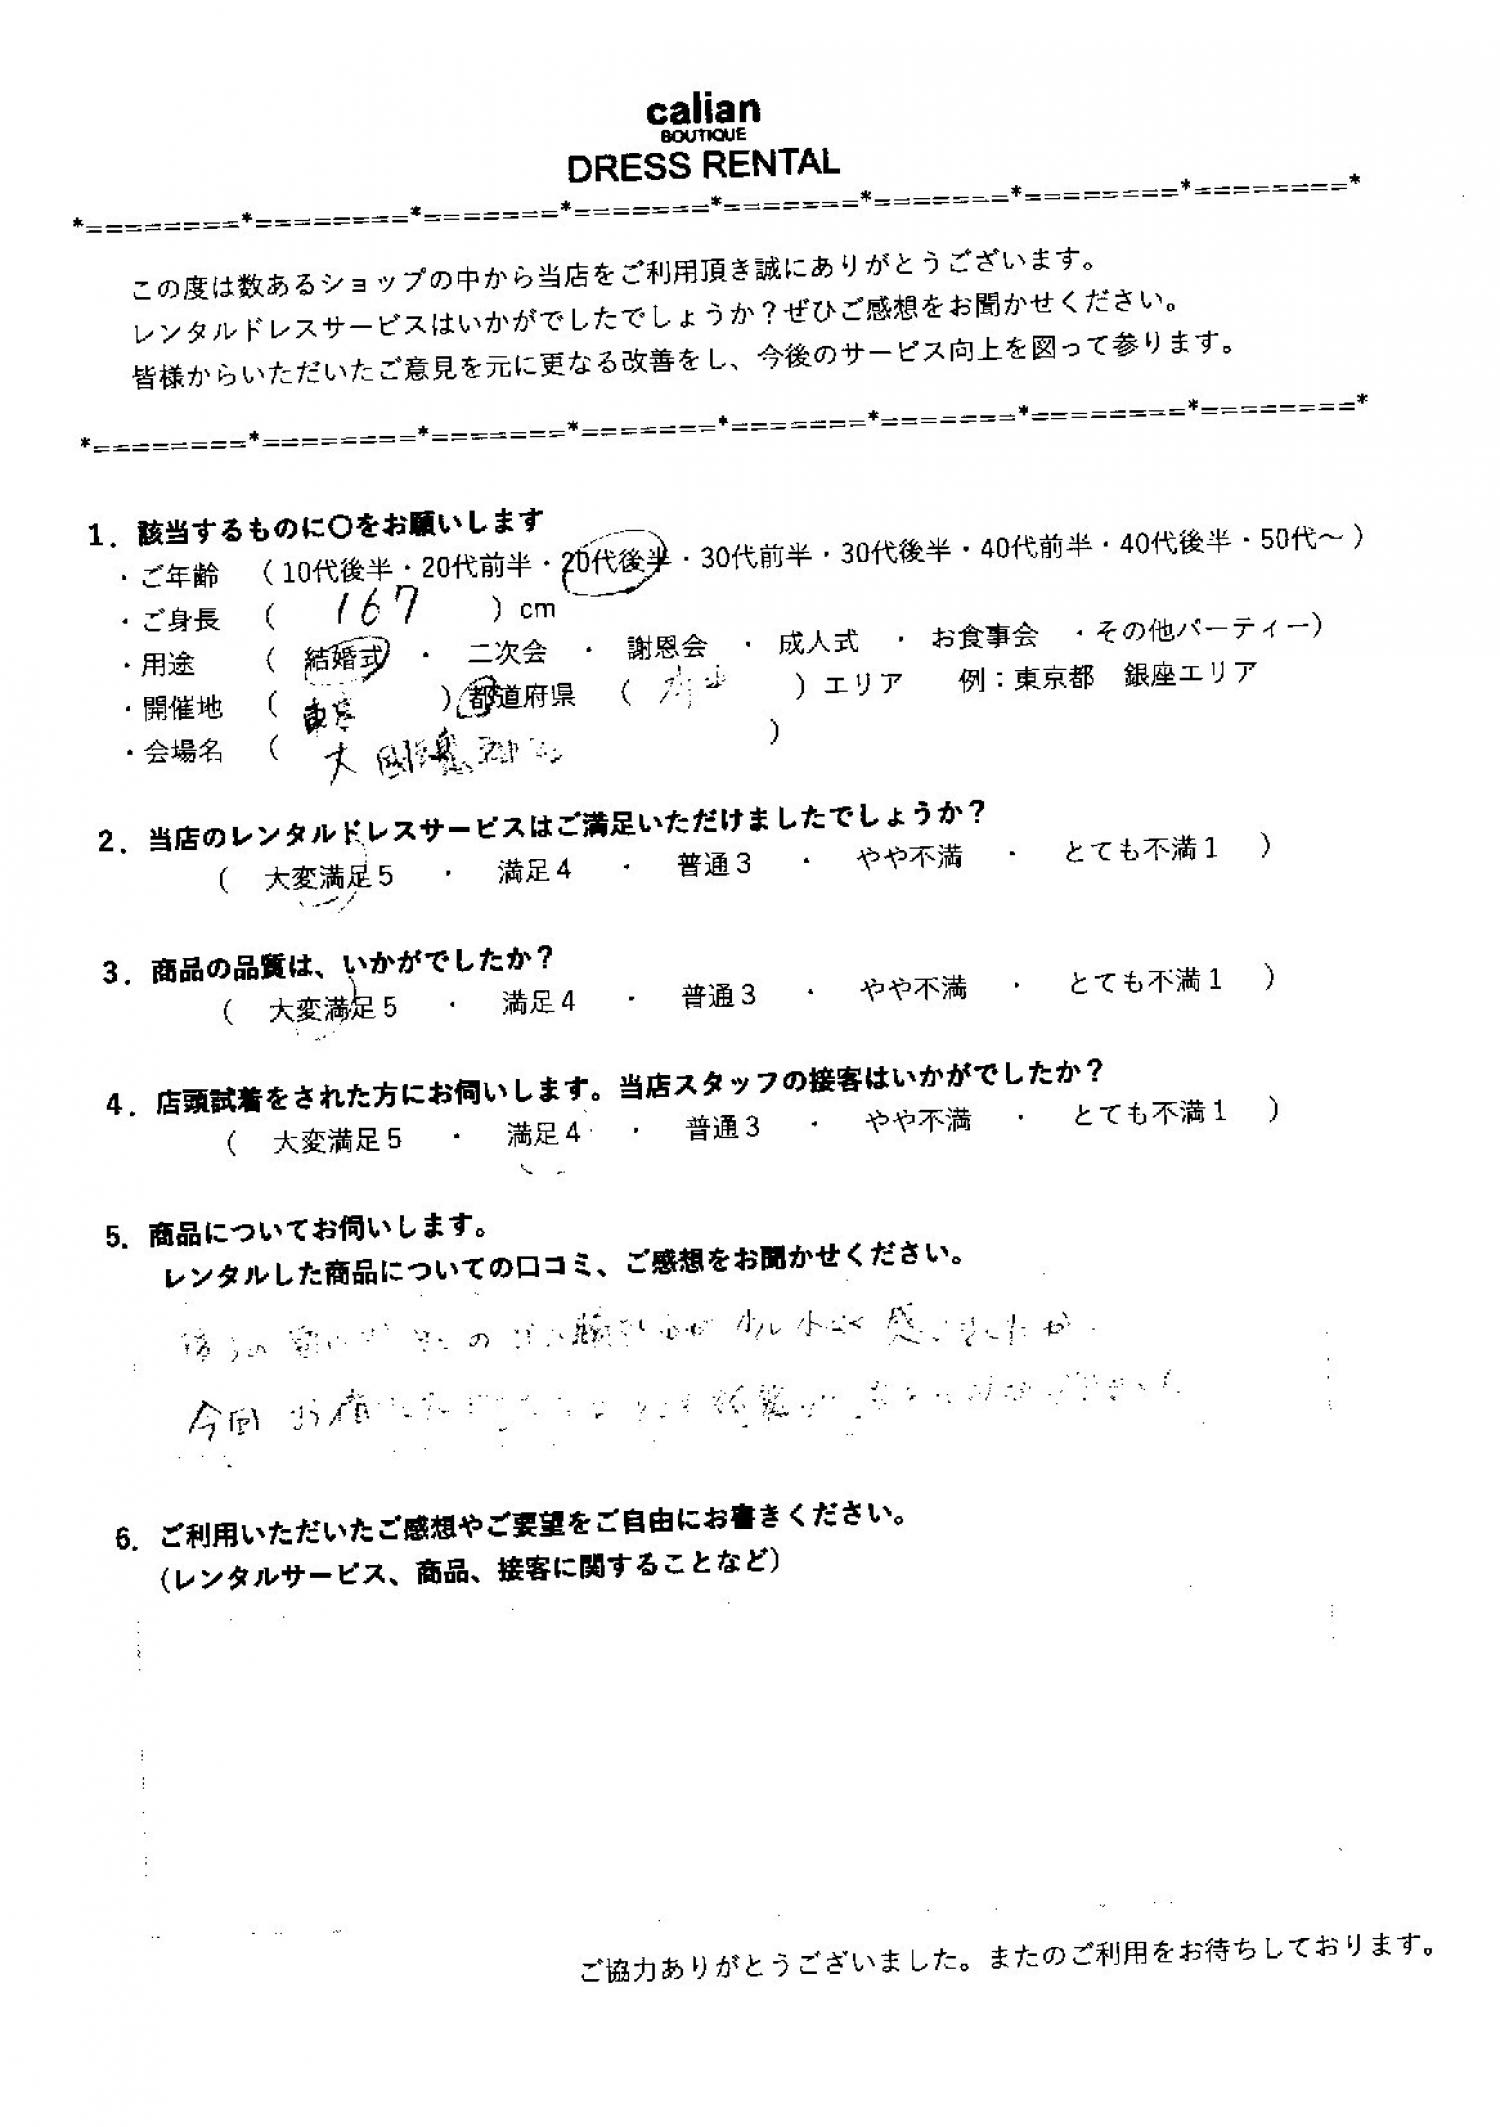 calian
BOUTIQUE
DRESS RENTAL
*========*========*=======*=======*=======*=======*========*========*
この度は数あるショップの中から当店をご利用頂き誠にありがとうございます。
レンタルドレスサービスはいかがでしたでしょうか？ぜひご感想をお聞かせください。
皆様からいただいたご意見を元に更なる改善をし、今後のサービス向上を図って参ります。
*========*========*=======*=======*=======*=======*========*========*
1．該当するものに〇をお願いします
・ご年齢　（10代後半・20代前半・20代後半・30代前半・30代後半・40代前半・40代後半・50代～）
・ご身長　（ 167 ）cm
・用途　（ 結婚式 ・ 二次会 ・ 謝恩会 ・ 成人式 ・ お食事会 ・その他パーティー）
・開催地　（ 東京 ）都道府県 （ ）エリア　例：東京都　銀座エリア
・会場名　（ 大 ）
2．当店のレンタルドレスサービスはご満足いただけましたでしょうか？
（ 大変満足5 ・ 満足4 ・ 普通3 ・ やや不満 ・ とても不満1 ）
3．商品の品質は、いかがでしたか？
（ 大変満足5 ・ 満足4 ・ 普通3 ・ やや不満 ・ とても不満1 ）
4．店頭試着をされた方にお伺いします。当店スタッフの接客はいかがでしたか？
（ 大変満足5 ・ 満足4 ・ 普通3 ・ やや不満 ・ とても不満1 ）
5．商品についてお伺いします。
レンタルした商品についての口コミ、ご感想をお聞かせください。
の 少し小さく感じましたが
今回 綺麗
6．ご利用いただいたご感想やご要望をご自由にお書きください。
（レンタルサービス、商品、接客に関することなど）
ご協力ありがとうございました。またのご利用をお待ちしております。